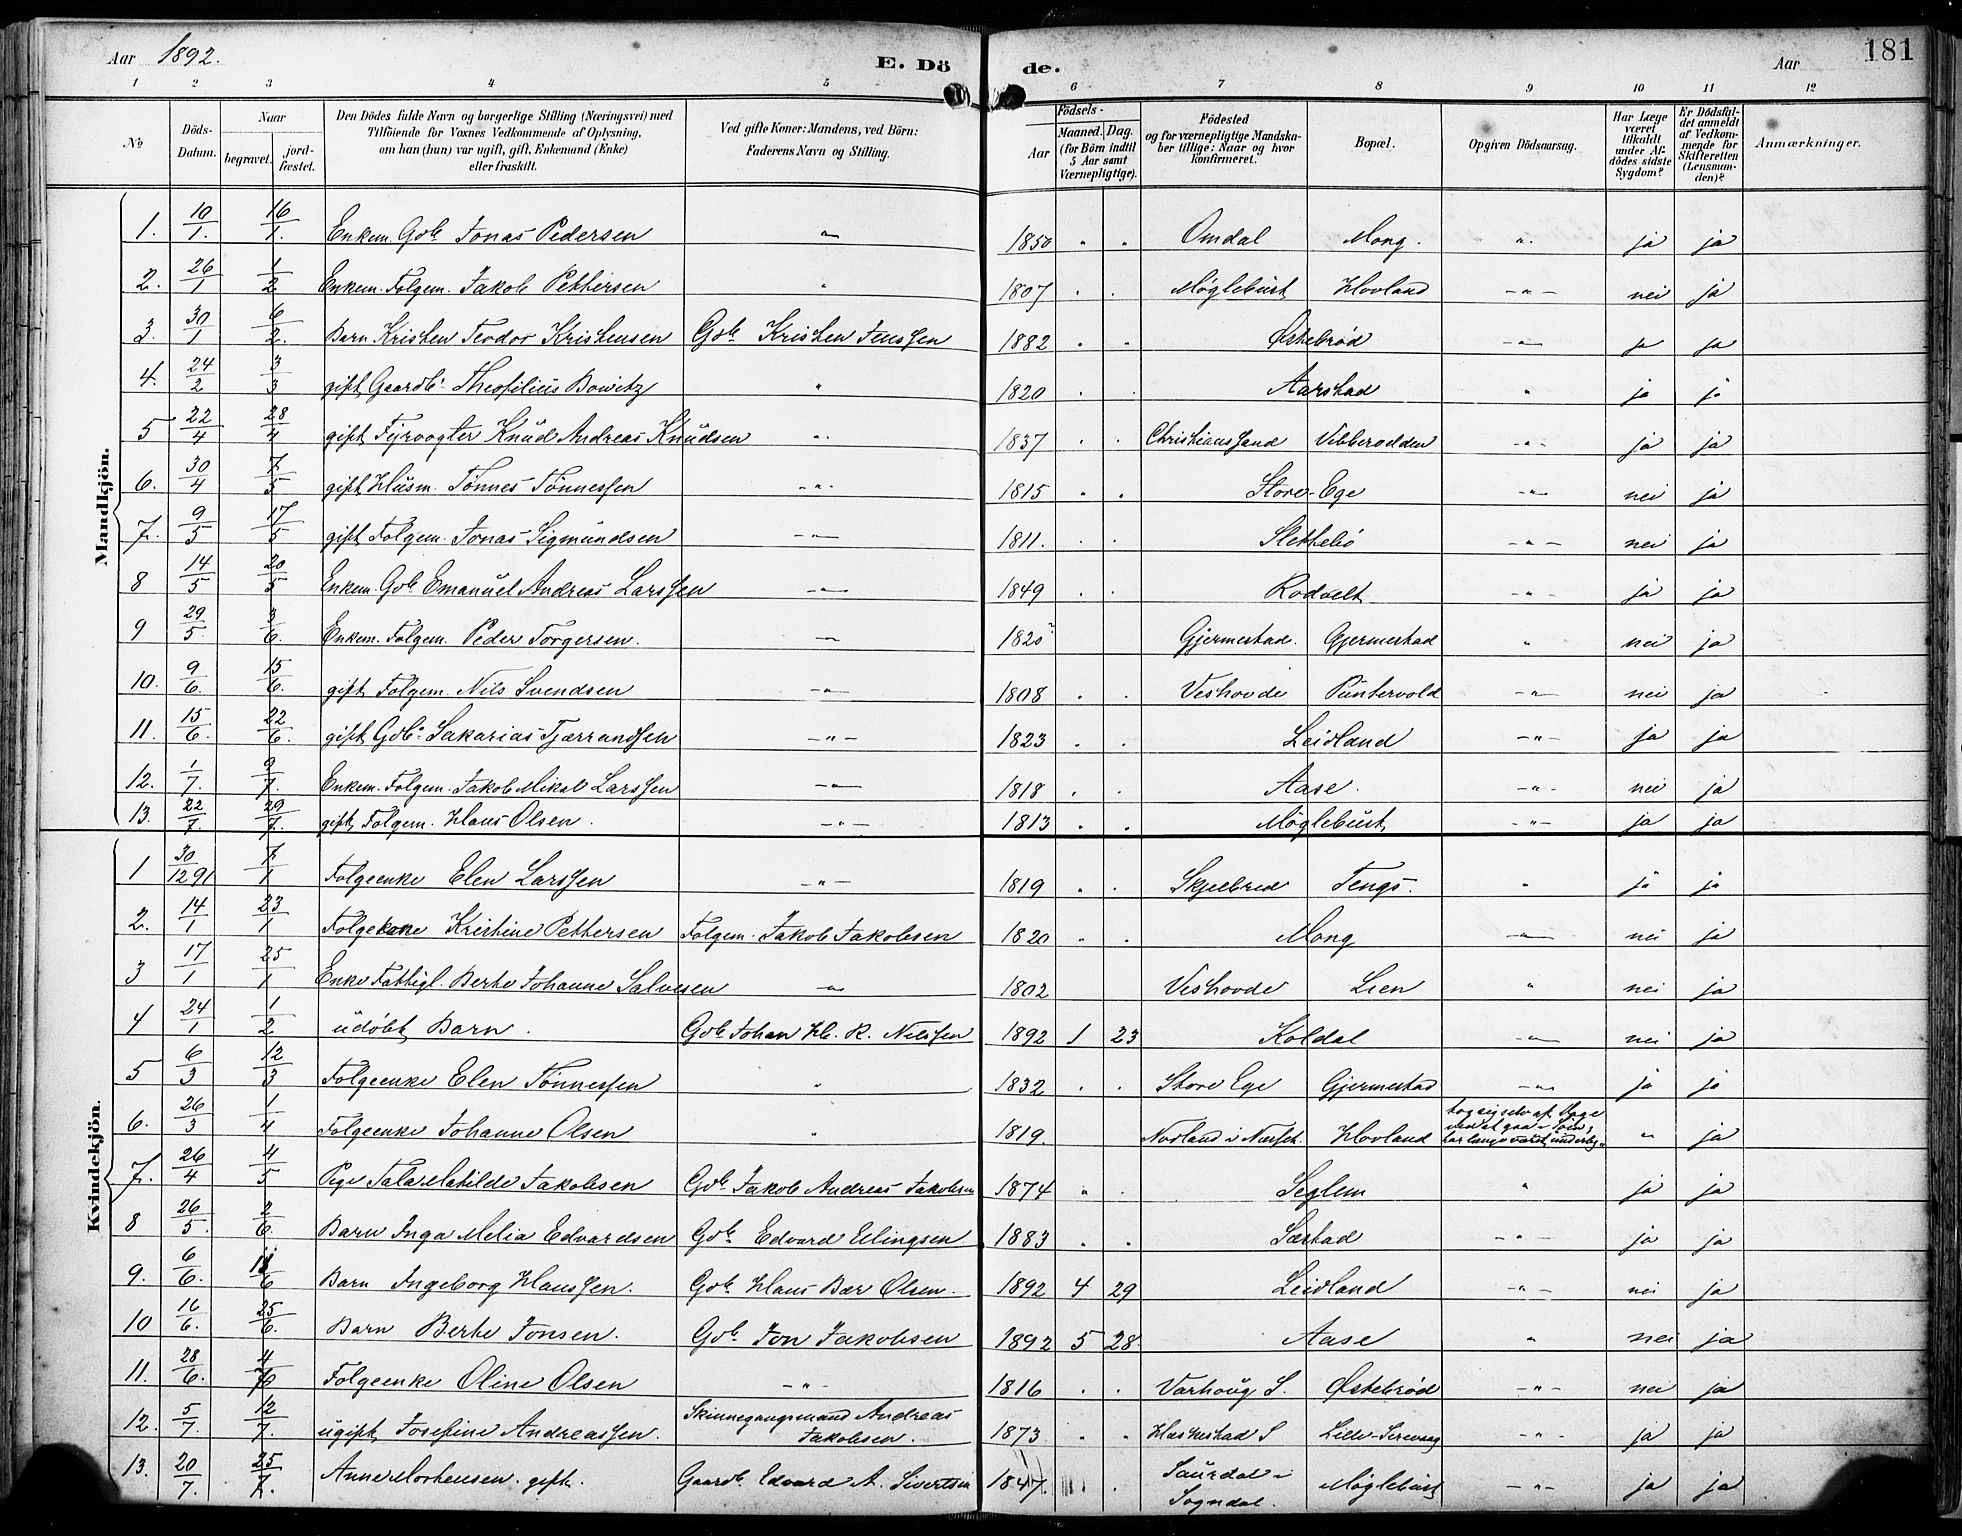 Aar 1892. E. Döde. Aar 181
1 2 3 4 5 6 7 8 9 10 11 12
No
Döds-Datum.
Naar
begravet.
jordfæstet.
Den Dödes fulde Navn og borgerlige Stilling (Næringsvei) med
Tilföiende for Voxnes Vedkommende af Oplysning,
om han (hun) var ugift, gift, Enkemand (Enke)
eller fraskilt.
Ved gifte Koner: Mandens, ved Börn:
Faderens Navn og Stilling.
Födsels-
Aar
Maaned. Dag.
(for Börn indtil
5 Aar samt
Værnepligtige).
Födested
og for værnepligtige Mandska-
ber tillige: Naar og hvor
konfirmeret.
Bopæl.
Opgiven Dödsaarsag.
Har Læge
været
tilkaldt
under Af-
dödes sidste
Sygdom?
Er Dödsfal-
det anmeldt
af Vedkom-
mende for
Skifteretten
(Lensman-
den)?
Anmærkninger.
Mandkjön.
1. 10/1. 16/1. Enkem. Gdb. Jonas Pedersen " 1850 " " Omdal Mong. " ja ja
2. 26/1 1/2 Enkem. Folgem. Jakob Pettersen " 1807 . . Møglebust Hovland -"- nei ja
3. 30/1 6/2. Barn Kristen Teodor Kristensen Gdb. Kristen Jenssen 1882 . . Østebrød -"- ja ja
4. 24/2 3/3 gift Gaardb. Theofilius Bowitz " 1820 . . Aarstad " ja ja
5 22/4 28/4 gift Fyrvogter Knud Andreas Knudsen " 1837 . . Christianssand Vibberodden -"- ja ja
6. 30/4 7/5 gift Husm. Tønnes Tønnessen -"- 1815 . . Store-Ege -"- nei ja
7. 9/5 17/5 gift Folgem. Jonas Sigmundsen -"- 1811. . . Slettebø -"- nei ja
8 14/5 20/5 Enkem. Gdb Emanuel Andreas Larssen -"- 1849 . . Rodvelt -"- ja ja
9 29/5. 3/6. Enkem. Folgem. Peder Torgersen. -"- 1820 . . Gjermestad. Gjermestad " nei ja
10. 9/6. 15/6. gift Folgem. Nils Svendsen -"- 1808 . . Veshovde Puntervold -"- nei ja
11. 15/6. 22/6. gift Gdb. Sakarias Tjærrandsen -"- 1823 . . Leidland -"- ja ja
12. 1/7. 9/7. Enkem. Folgem. Jakob Mikal Larssen -"- 1818 . . Aase. -"- nei ja
13. 22/7. 29/7. gift Folgem. Hans Olsen. -"- 1813 . . Møglebust -"- ja ja
Kvindekjön.
1 30/12 91 7/1 Folgeenke Elen Larssen -"- 1819 . . Skjelbred Tengs. " ja ja
2. 14/1 23/1 Folgekone Kristine Pettersen Folgem. Jakob Jakobsen 1820 . . Mong -"- nei ja
3 17/1 25/1 Enke Fattigl. Berte Johanne Salvesen " 1802 Veshovde Lien " nei ja
4 24/1 1/2 udøbt Barn. Gdb Johan H. R. Nilssen 1892 1 23 Koldal -"- nei ja
5 6/3 12/3 Folgeenke Elen Tønnessen " 1832 . . Store Ege Gjermestad -"- ja ja
6. 26/3 1/4 Folgeenke Johanne Olsen " 1819. Hovland " ja
7. 26/4 4/5 Pige Tala Matilde Jakobsen Gdb. Jakob Andreas Jakobsen 1874 " . Seglem " ja ja
8 26/5. 2/6. Barn Inga Melia Edvardsen Gdb. Edvard Elingsen 1883 . . Sæstad -"- ja ja
9. 6/6. 11/6 Barn Ingeborg Hanssen. Gdb. Hans Bær Olsen. 1892 4 29 Leidland -"- nei ja
10 16/6. 25/6. Barn Berte Jonsen. Gdb. Jon Jakobsen 1892 5 28. Aase " nei ja
11. 28/6. 4/7 Folgeenke Oline Olsen -"- 1816 . . Varhoug S. Østebrød -"- nei ja
12. 5/7. 12/7. ugift Josefine Andreassen. Skinnegangsmand Andreas
Jakobsen. 1873 . . Hæskestad S Lille-Sirevaag -"- ja ja
13. 20/7. 25/7. Anne Mortensen. gift. Gaardb. Edvard A. Sivertsen 1847. . Saurdal i
Sogndal. Møglebust -"- ja ja